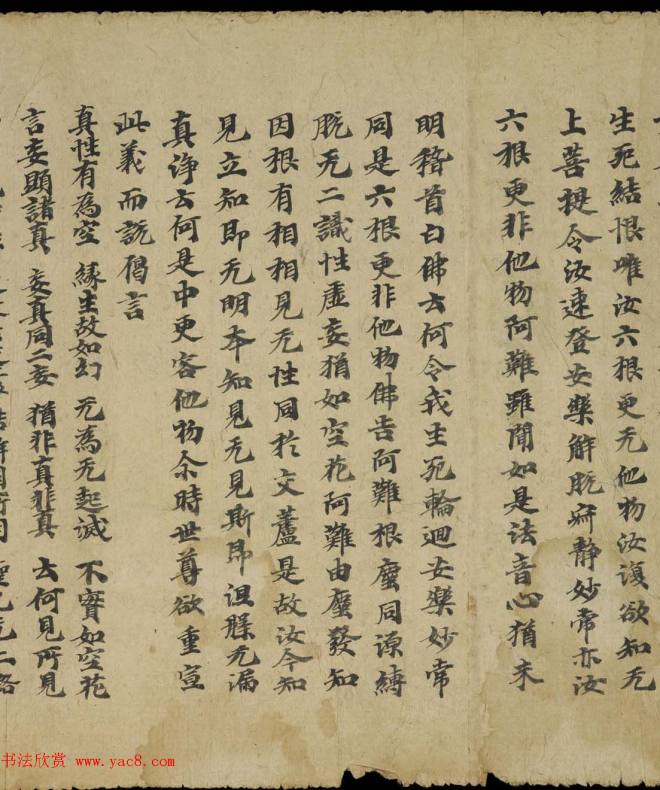 生死結根唯汝六根更无他物汝復欲知无
上菩提令汝速登安樂解脫寂静妙常亦汝
六根更非他物阿難雖聞如是法音心猶未
明稽首白佛云何令我生死輪迴安樂妙常
同是六根更非他物佛告阿難根塵同源縛
脫无二識性虛妄猶如空花阿難由塵發知
因根有相相見无性同於交蘆是故汝今知
見立知即无明本知見无見斯即涅槃无漏
真淨云何是中更容他物尒時世尊欲重宣
此義而説偈言
真性有為空 緣生故如幻 无為无起滅 不實如空花
言妄顯諸真 妄真同二妄 猶非真非真 云何見所見
二路
书法欣赏 www.yac8.com